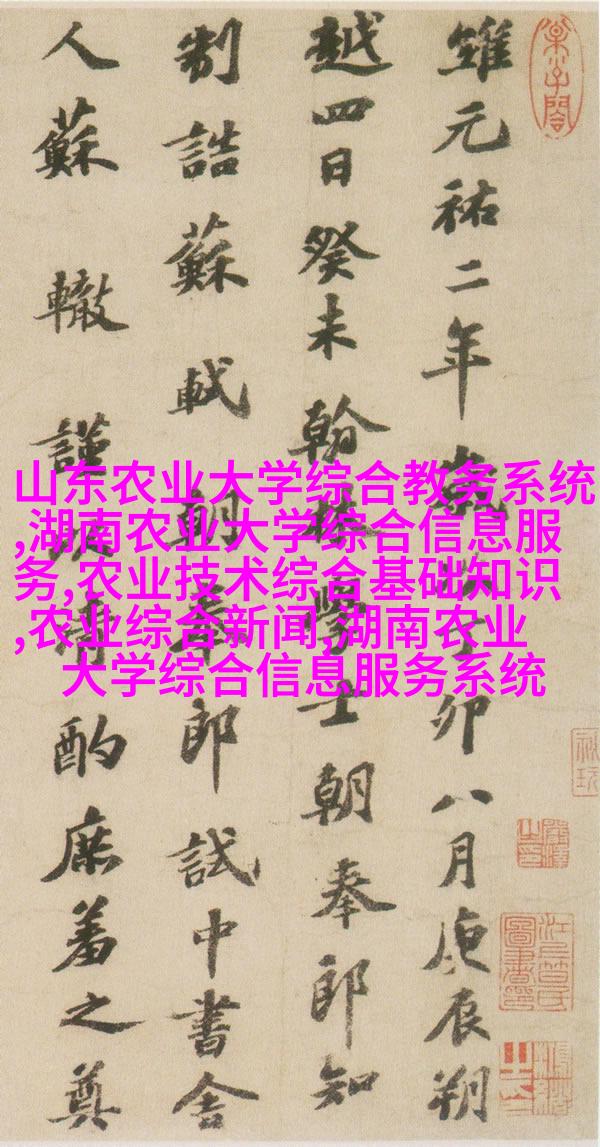 維元祐二年歲次丁卯八月庚辰朔
越四日癸未翰林學士朝奉郎知
制誥蘇軾朝奉郎試中書舍
人蘇轍謹以清酌庶羞之奠
山东农业大学综合教务系统
,湖南农业大学综合信息服
务,农业技术综合基础知识
,农业综合新闻,湖南农业
大学综合信息服务系统